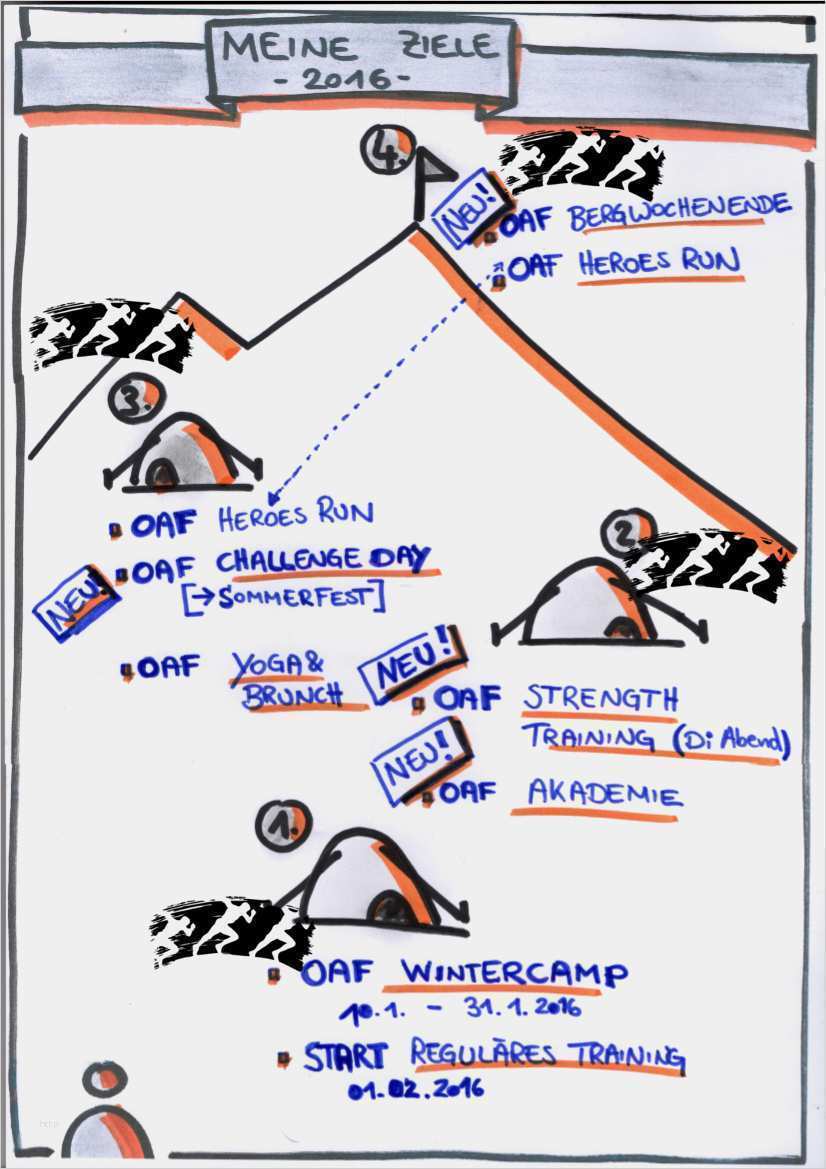 MEINE ZIELE
- 2016 -
4.
NEU!
OAF BERGWOCHENENDE
OAF HEROES RUN
3.
OAF HEROES RUN
NEU!
OAF CHALLENGE DAY
[→ SOMMERFEST]
OAF YOGA &
BRUNCH
2.
NEU!
OAF STRENGTH
TRAINING (Di Abend)
NEU!
OAF AKADEMIE
1.
OAF WINTERCAMP
10.1. - 31.1.2016
START REGULÄRES TRAINING
01.02.2016